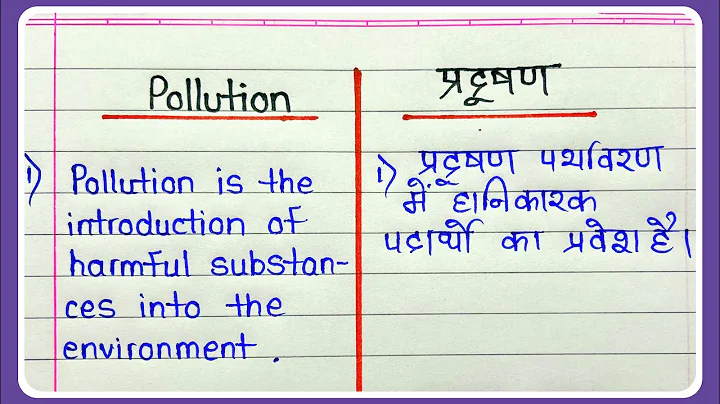 Pollution
1) Pollution is the
introduction of
harmful substan-
ces into the
environment.
प्रदूषण
1) प्रदूषण पर्यावरण
में हानिकारक
पदार्थो का प्रवेश है।